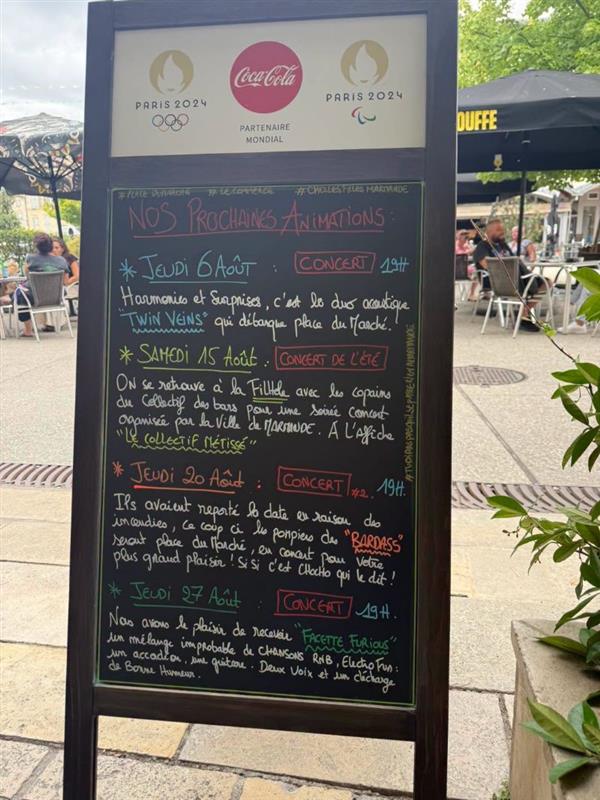 PARIS 2024
Coca-Cola
PARTENAIRE
MONDIAL
PARIS 2024
OUFFE
#PLACE DUMARCHE #LE COMMERCE #CHOLLESFILLES MARMANDE
NOS PROCHAINES ANIMATIONS :
* JEUDI 6 AOÛT : CONCERT 19H
Harmonies et Surprises, c'est le duo acoustique
"TWIN VEINS" qui débarque place du Marché.
* SAMEDI 15 AOÛT : CONCERT DE L'ÉTÉ
ON se retrouve à la Filhole avec les copains
du Collectif des bars pour une soirée Concert
organisée par la Ville de MARMANDE. A L'affiche
"LE COLLECTIF MÉTISSÉ"
* JEUDI 20 AOÛT : CONCERT #2. 19H.
Ils avaient reporté la date en raison des
incendies, ce coup ci les pompiers du "BARDASS"
seront place du Marché, en concert pour votre
plus grand plaisir ! Si si c'est Chocho qui le dit !
* JEUDI 27 AOÛT : CONCERT 19H.
Nous avons le plaisir de recevoir "FACETTE FURIOUS"
un mélange improbable de CHANSONS RNB, Electro Fun :
un accordéon, une guitare. Deux Voix et un décharge
de Bonne Humeur.